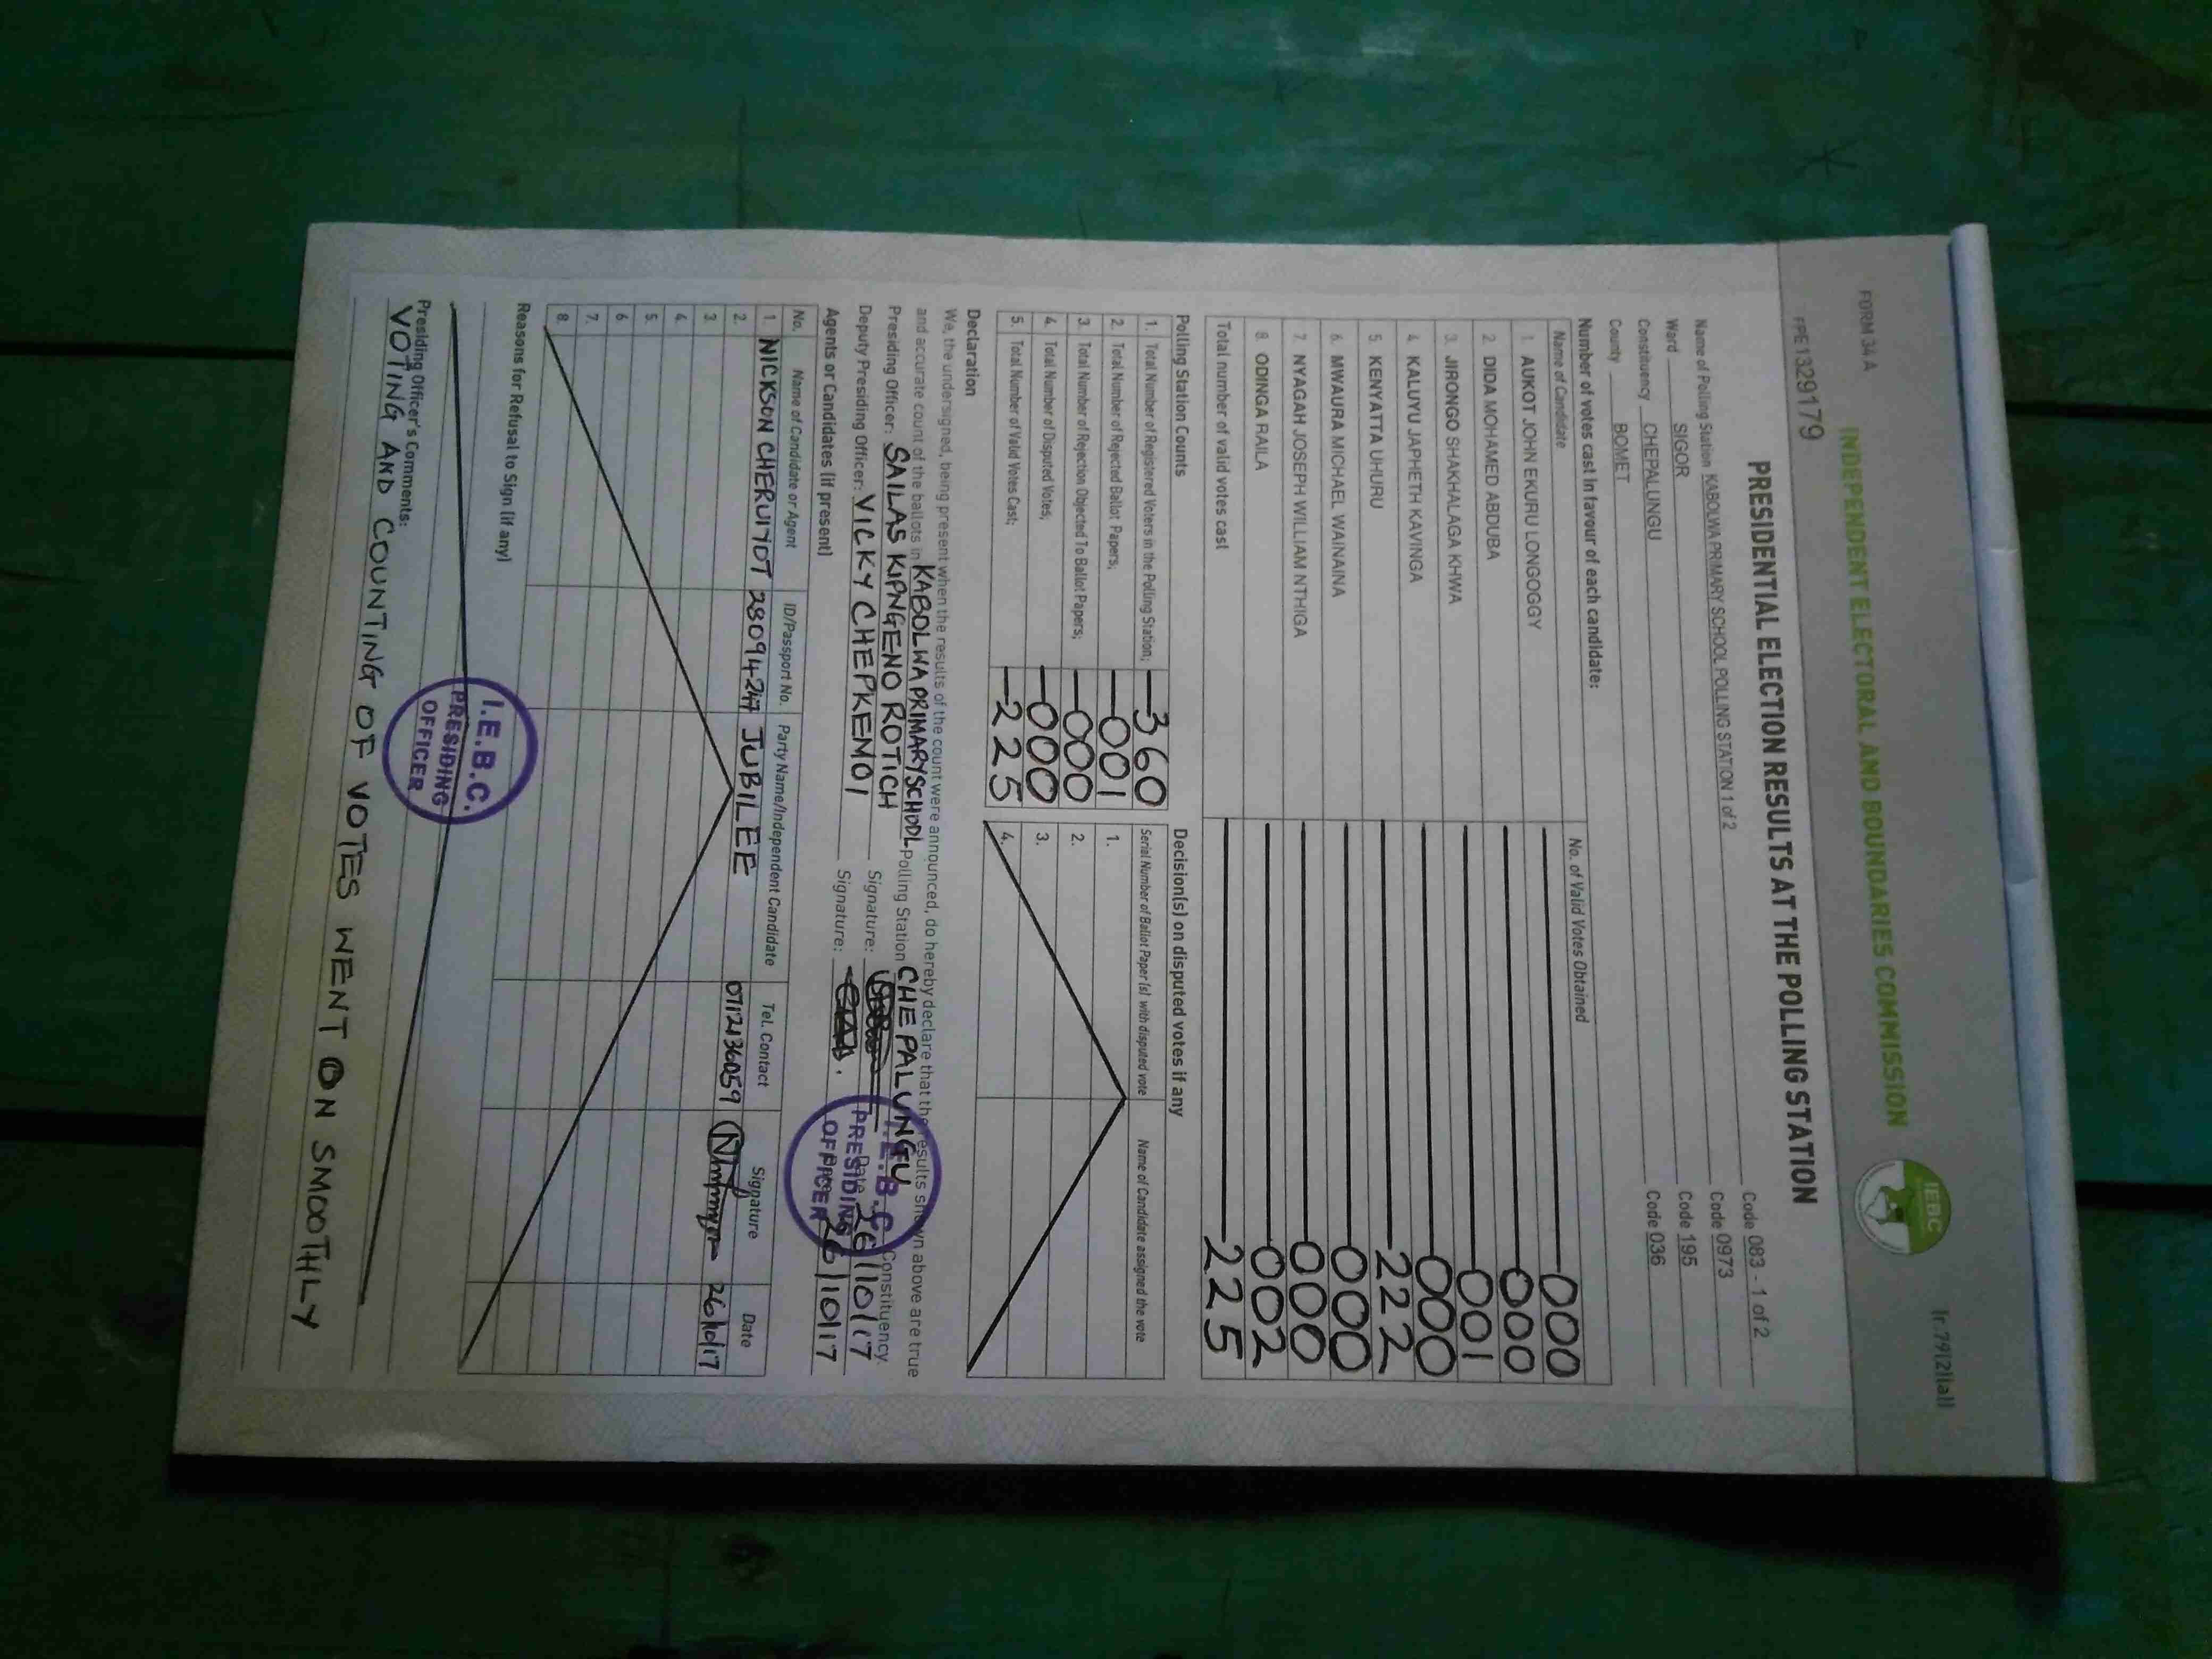 FORM 34 A
(r.79(2)(a))
INDEPENDENT ELECTORAL AND BOUNDARIES COMMISSION
IEBC
FPE1329179
PRESIDENTIAL ELECTION RESULTS AT THE POLLING STATION
Name of Polling Station KABOLWA PRIMARY SCHOOL POLLING STATION 1 of 2 Code 083 - 1 of 2
Ward SIGOR Code 0973
Constituency CHEPALUNGU Code 195
County BOMET Code 036
Number of votes cast in favour of each candidate:
Name of Candidate No. of Valid Votes Obtained
1. AUKOT JOHN EKURU LONGOGGY 000
2. DIDA MOHAMED ABDUBA 000
3. JIRONGO SHAKHALAGA KHWA 001
4. KALUYU JAPHETH KAVINGA 000
5. KENYATTA UHURU 222
6. MWAURA MICHAEL WAINAINA 000
7. NYAGAH JOSEPH WILLIAM NTHIGA 000
8. ODINGA RAILA 002
Total number of valid votes cast 225
Polling Station Counts
1. Total Number of Registered Voters in the Polling Station; 360
2. Total Number of Rejected Ballot Papers; 001
3. Total Number of Rejection Objected To Ballot Papers; 000
4. Total Number of Disputed Votes; 000
5. Total Number of Valid Votes Cast; 225
Decision(s) on disputed votes if any
Serial Number of Ballot Paper (s) with disputed vote Name of Candidate assigned the vote
1.
2.
3.
4.
Declaration
We, the undersigned, being present when the results of the count were announced, do hereby declare that the results shown above are true
and accurate count of the ballots in KABOLWA PRIMARY SCHOOL Polling Station CHEPALUNGU Constituency.
Presiding Officer: SAILAS KIPNGENO ROTICH Signature: Date 26/10/17
Deputy Presiding Officer: VICKY CHEPKEMOI Signature: Date 26/10/17
I.E.B.C.
PRESIDING
OFFICER
Agents or Candidates (if present)
No. Name of Candidate or Agent ID/Passport No. Party Name/Independent Candidate Tel. Contact Signature Date
1. NICKSON CHERUIYOT 28094247 JUBILEE 0712136059 26/10/17
2.
3.
4.
5.
6.
7.
8.
Reasons for Refusal to Sign (if any)
I.E.B.C.
PRESIDING
OFFICER
Presiding Officer's Comments:
VOTING AND COUNTING OF VOTES WENT ON SMOOTHLY